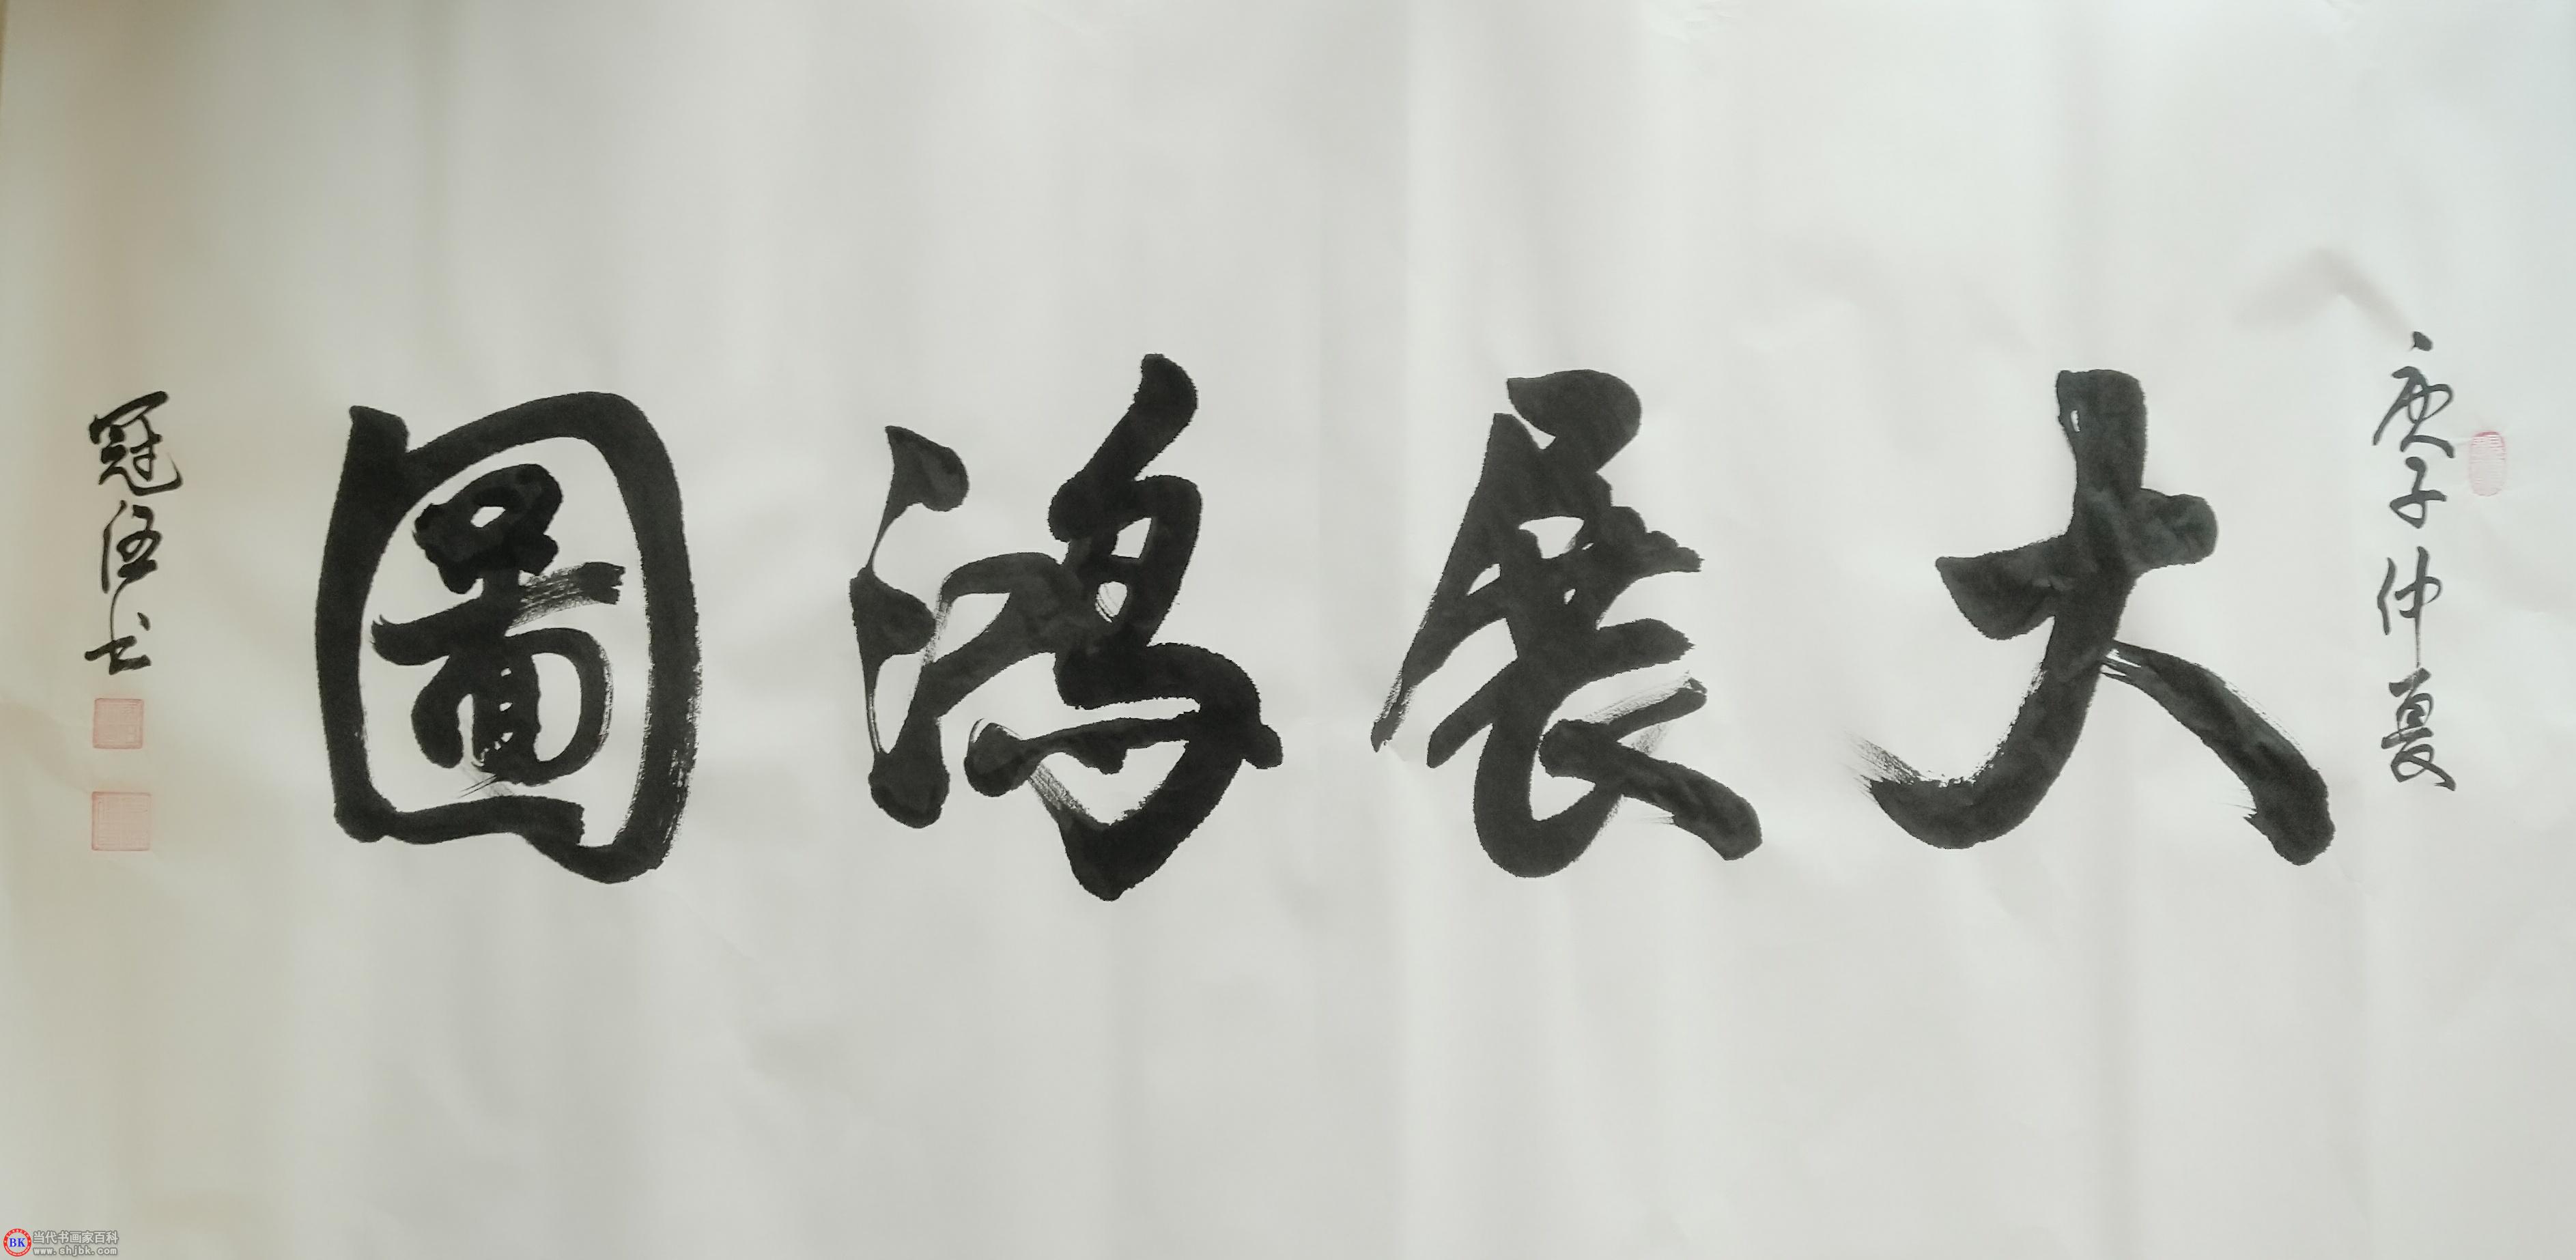 庚子仲夏
大展鴻圖
冠伍书
BK 当代书画家百科
www.shjbk.com